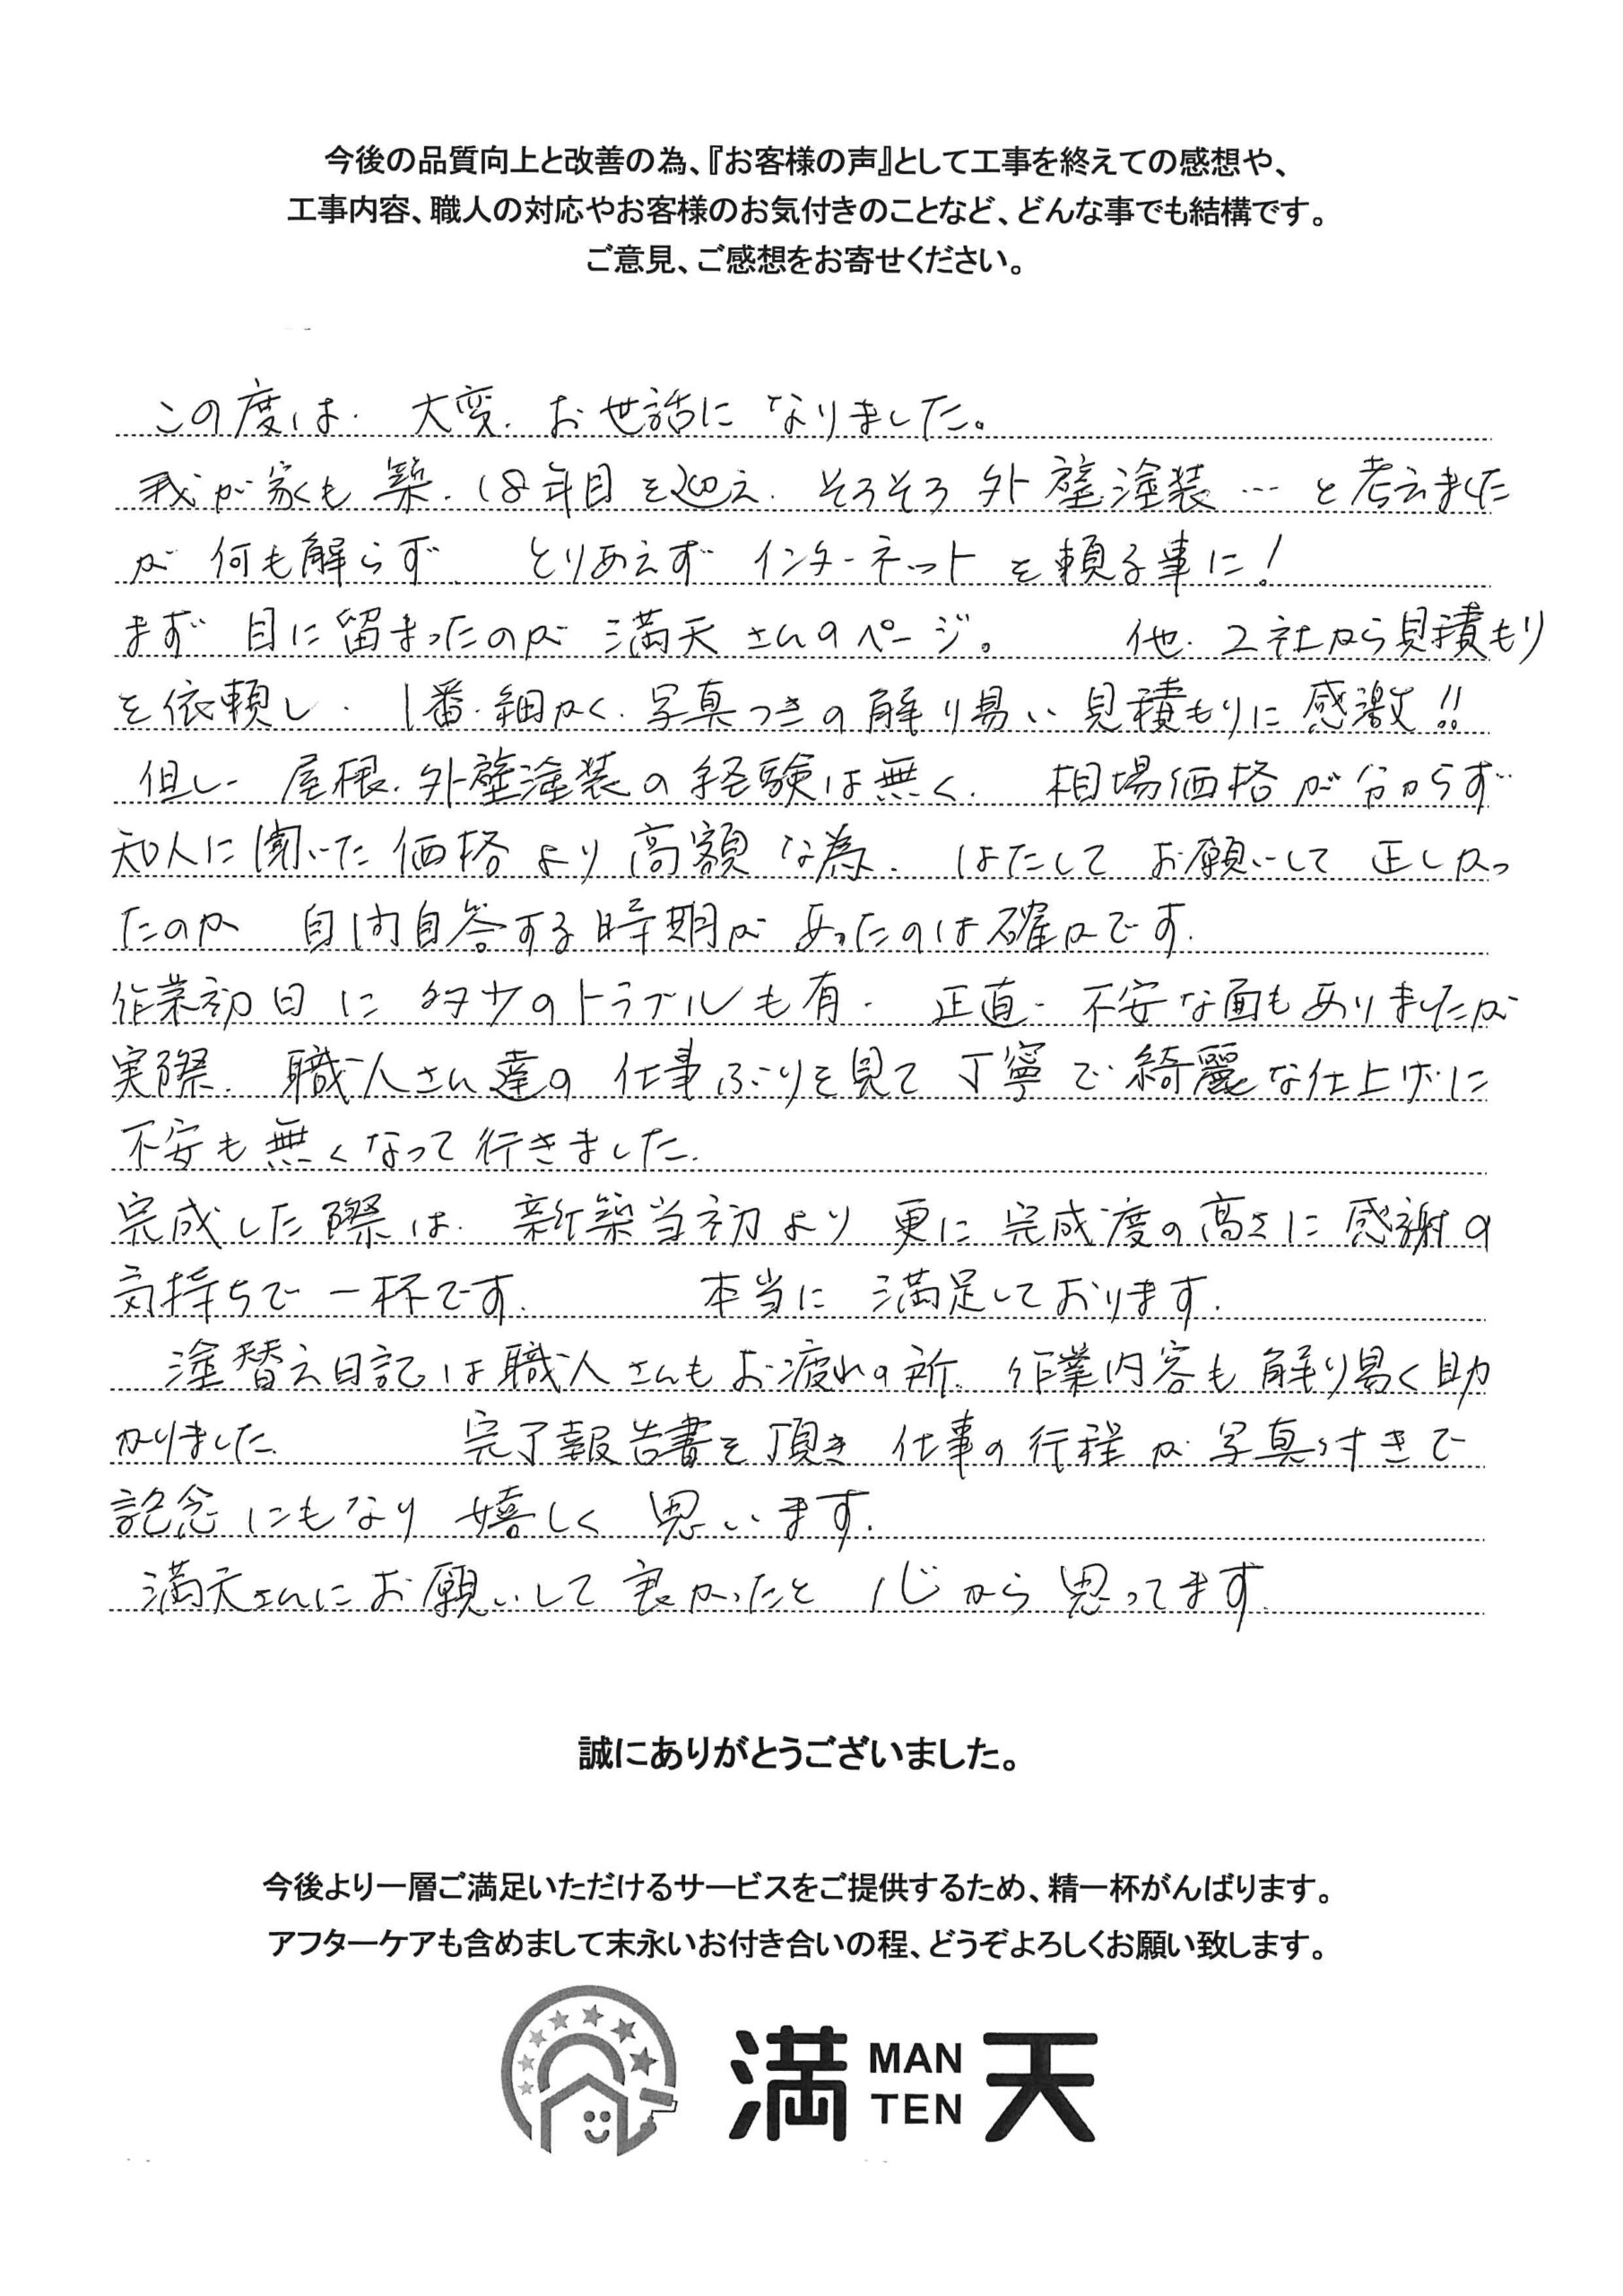 今後の品質向上と改善の為、『お客様の声』として工事を終えての感想や、
工事内容、職人の対応やお客様のお気付きのことなど、どんな事でも結構です。
ご意見、ご感想をお寄せください。
この度は、大変、お世話になりました。
我が家も築、18年目を迎え、そろそろ外壁塗装…と考えました
が何も解らず、とりあえずインターネットを頼る事に!
まず目に留まったのが満天さんのページ。他、2社から見積もり
を依頼し、1番、細かく、写真つきの解り易い見積もりに感激!!
但し、屋根、外壁塗装の経験は無く、相場価格が分からず
知人に聞いた価格より高額な為、はたしてお願いして正しかっ
たのか自問自答する時期があったのは確かです。
作業初日に多少のトラブルも有、正直、不安な面もありましたが
実際、職人さん達の仕事ぶりを見て丁寧で綺麗な仕上げに
不安も無くなって行きました。
完成した際は、新築当初より更に完成度の高さに感謝の
気持ちで一杯です。本当に満足しております。
塗替え日記は職人さんもお疲れの所、作業内容も解り易く助
かりました。完了報告書を頂き仕事の行程が写真付きで
記念にもなり嬉しく思います。
満天さんにお願いして良かったと心から思ってます。
誠にありがとうございました。
今後より一層ご満足いただけるサービスをご提供するため、精一杯がんばります。
アフターケアも含めまして末永いお付き合いの程、どうぞよろしくお願い致します。
満 MAN TEN 天